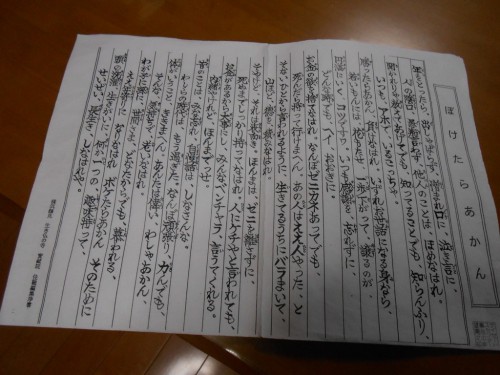 ぼけたらあかん
年をとったら 出しゃばらず、憎まれ口に、泣き言に、
人のかげ口 愚痴言わず、他人のことは、ほめなはれ、
聞かれりゃ教えてあげても、知ってることでも 知らんふり、
いつも アホで いるこっちゃ。
勝ったらあかん、負けなはれ いずれお世話になる身なら、
若いもんには 花もたせ、一歩下がって 譲るのが、
円満にいく コツですわ、いつも感謝を 忘れずに、
どんな時でも、ヘイ、おおきに。
お金の欲を捨てなはれ、なんぼ ゼニカネあっても、
死んだら 持って行けまへん、あの人は ええ人やった、と
そないひとから言われるように、生きてるうちに バラまいて、
山ほど 徳を 積みなはれ。
そやけど、それは表向き、ほんまは ゼニを離さずに、
死ぬまで しっかり 持ってなはれ、人にケチやと言われても、
お金があるから大事にし、みんなベンチャラ、言うてくれる、
内緒やけど、ほんまでっせ。
昔のことは みな忘れ 自慢話は しなさんな、
わしらの時代は もう過ぎた、なんぼ頑張り 力んでも、
体がいうこと ききまへん、あんたは偉い わしゃあかん、
そんな気持ちで、おりなはれ。
わが子に孫に、世間さま、どなたからでも 慕われる
ええ年寄りに なりなはれ、ボケたらあかん そのために
頭の洗濯 生きがいに、何か一つの 趣味持って、
せいぜい 長生き しなはれや。